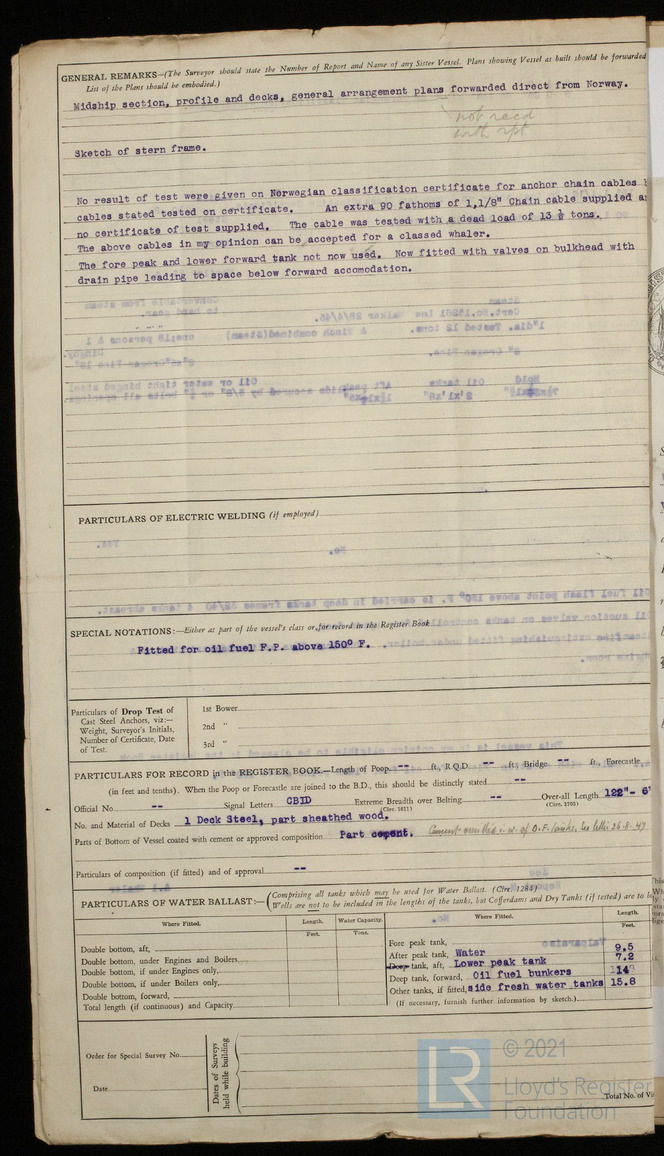 GENERAL REMARKS—(The Surveyor should state the Number of Report and Name of any Sister Vessel. Plans showing Vessel as built should be forwarded
List of the Plans should be embodied.)
Midship section, profile and decks, general arrangement plans forwarded direct from Norway.
not recd
with rpt
Sketch of stern frame.
No result of test were given on Norwegian classification certificate for anchor chain cables
cables stated tested on certificate. An extra 90 fathoms of 1,1/8" Chain cable supplied
no certificate of test supplied. The cable was tested with a dead load of 13 ½ tons.
The above cables in my opinion can be accepted for a classed whaler.
The fore peak and lower forward tank not now used. Now fitted with valves on bulkhead with
drain pipe leading to space below forward accomodation.
PARTICULARS OF ELECTRIC WELDING (if employed)
SPECIAL NOTATIONS:—Either as part of the vessel's class or for record in the Register Book
Fitted for oil fuel F.P. above 150° F.
Particulars of Drop Test of
Cast Steel Anchors, viz:—
Weight, Surveyor's Initials,
Number of Certificate, Date
of Test.
1st Bower
2nd "
3rd "
PARTICULARS FOR RECORD in the REGISTER BOOK.—Length of Poop -- ft., R.Q.D. -- ft., Bridge -- ft., Forecastle
(in feet and tenths). When the Poop or Forecastle are joined to the B.D., this should be distinctly stated --
Official No. -- Signal Letters CBID Extreme Breadth over Belting -- Over-all Length 122"- 6"
(Circ. 1611) (Circ. 1703)
No. and Material of Decks 1 Deck Steel, part sheathed wood.
Parts of Bottom of Vessel coated with cement or approved composition Part cement. Cement O.F. tanks. See letter 26.8.47
Particulars of composition (if fitted) and of approval --
PARTICULARS OF WATER BALLAST:— (Comprising all tanks which may be used for Water Ballast. (Circ. 1284)
Wells are not to be included in the lengths of the tanks, but Cofferdams and Dry Tanks (if tested) are to
Where Fitted. Length. Water Capacity. Where Fitted. Length.
Feet. Tons. Feet.
Double bottom, aft,
Double bottom, under Engines and Boilers,
Double bottom, if under Engines only,
Double bottom, if under Boilers only,
Double bottom, forward,
Total length (if continuous) and Capacity
Fore peak tank, 9.5
After peak tank, Water 7.2
Deep tank, aft, Lower peak tank
Deep tank, forward, Oil fuel bunkers
Other tanks, if fitted, side fresh water tanks 15.8
(If necessary, furnish further information by sketch.)
Order for Special Survey No.
Date
Dates of Surveys
held while building
Total No. of
LR
© 2021
Lloyd's Register
Foundation